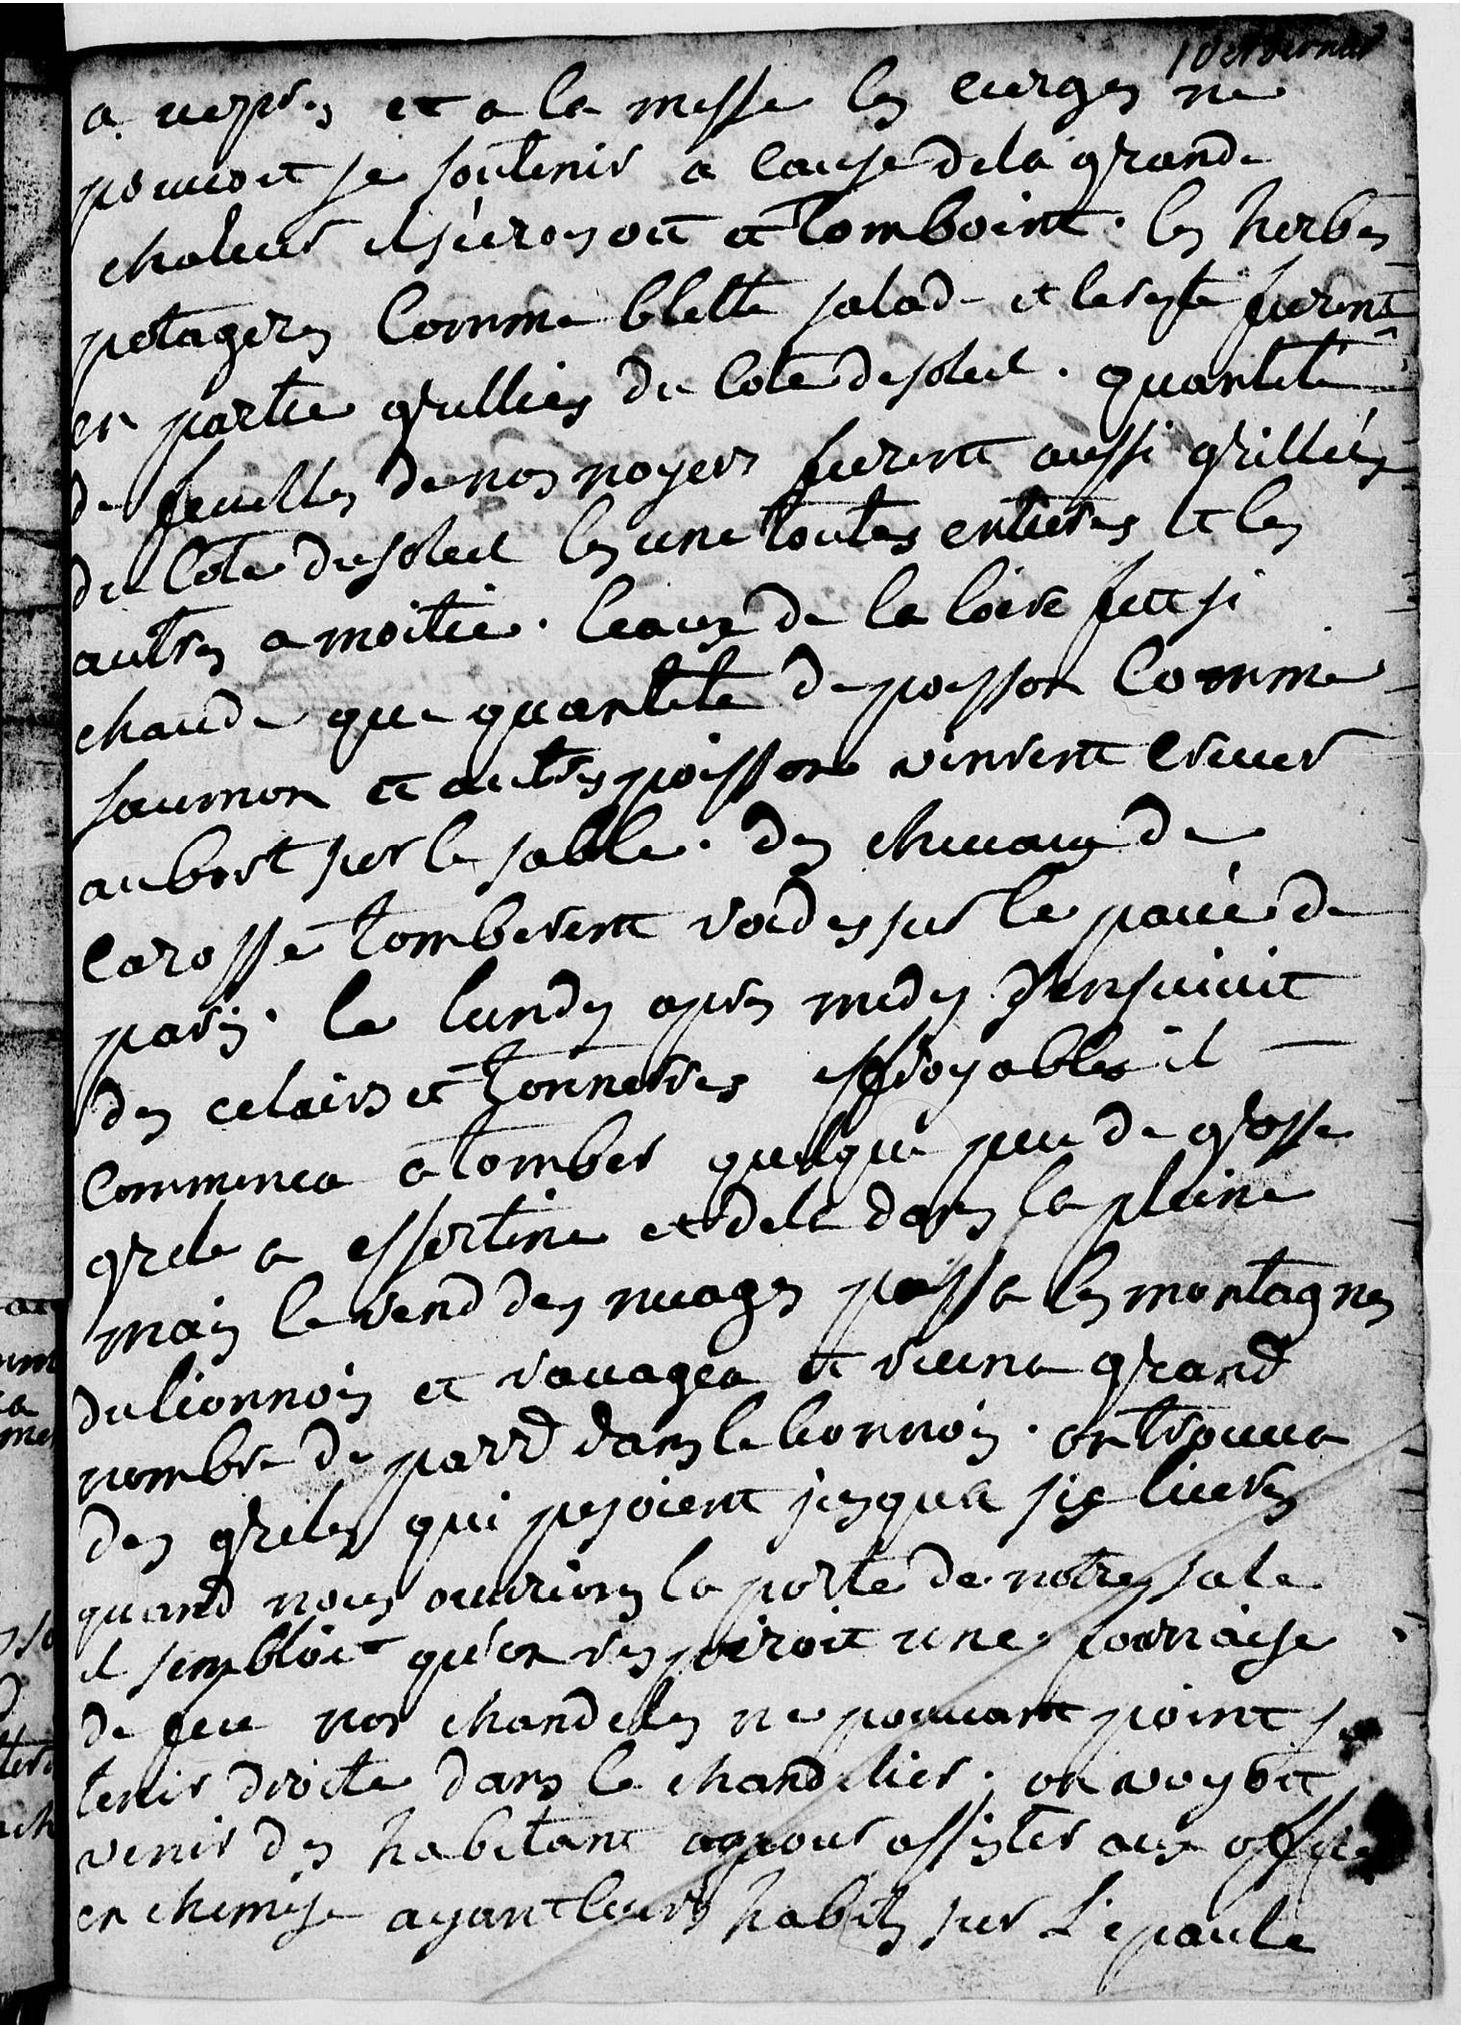 a vespres et a la messe les cierges ne
pouvoit se soutenir a cause dela grande
chaleur et tomboint. les herbes
potageres Comme blette salade et le reste furent
en partie grillies du Cote du soleil. quantité
de feuilles de nos noyers furent aussi grillées
du Cote du soleil les une toutes entieres et les
autres a moitie. leaux de la loire fut si
chaude que quantite de poisson Comme
saumon et autres poisson vinrent crever
au bort sur le sable. des chevaux de
Carosse tomberent roides sur le pavé de
paris. le lundy apres midy s'ensuivit
des eclairs et tonnerres effroyables il
Commenca a tomber quelque peu de grosse
grele a essertine et dela dans la pleine
mais le vend des nuages passa les montagnes
du lionnois et ravagea et ruina grand
nombre de parr dans le lionnois. on trouva
des greles qui pesoient jusqua six livres
quand nous ouvrions la porte de notre sale
il sembloit qu'on respiroit une fornaise
de feu nos chandeles ne pouvant point se
tenir droite dans le chandelier. on voyoit
venir des habitant pour assister aux offices
en chemise ayant leurs habits sur L'epaule